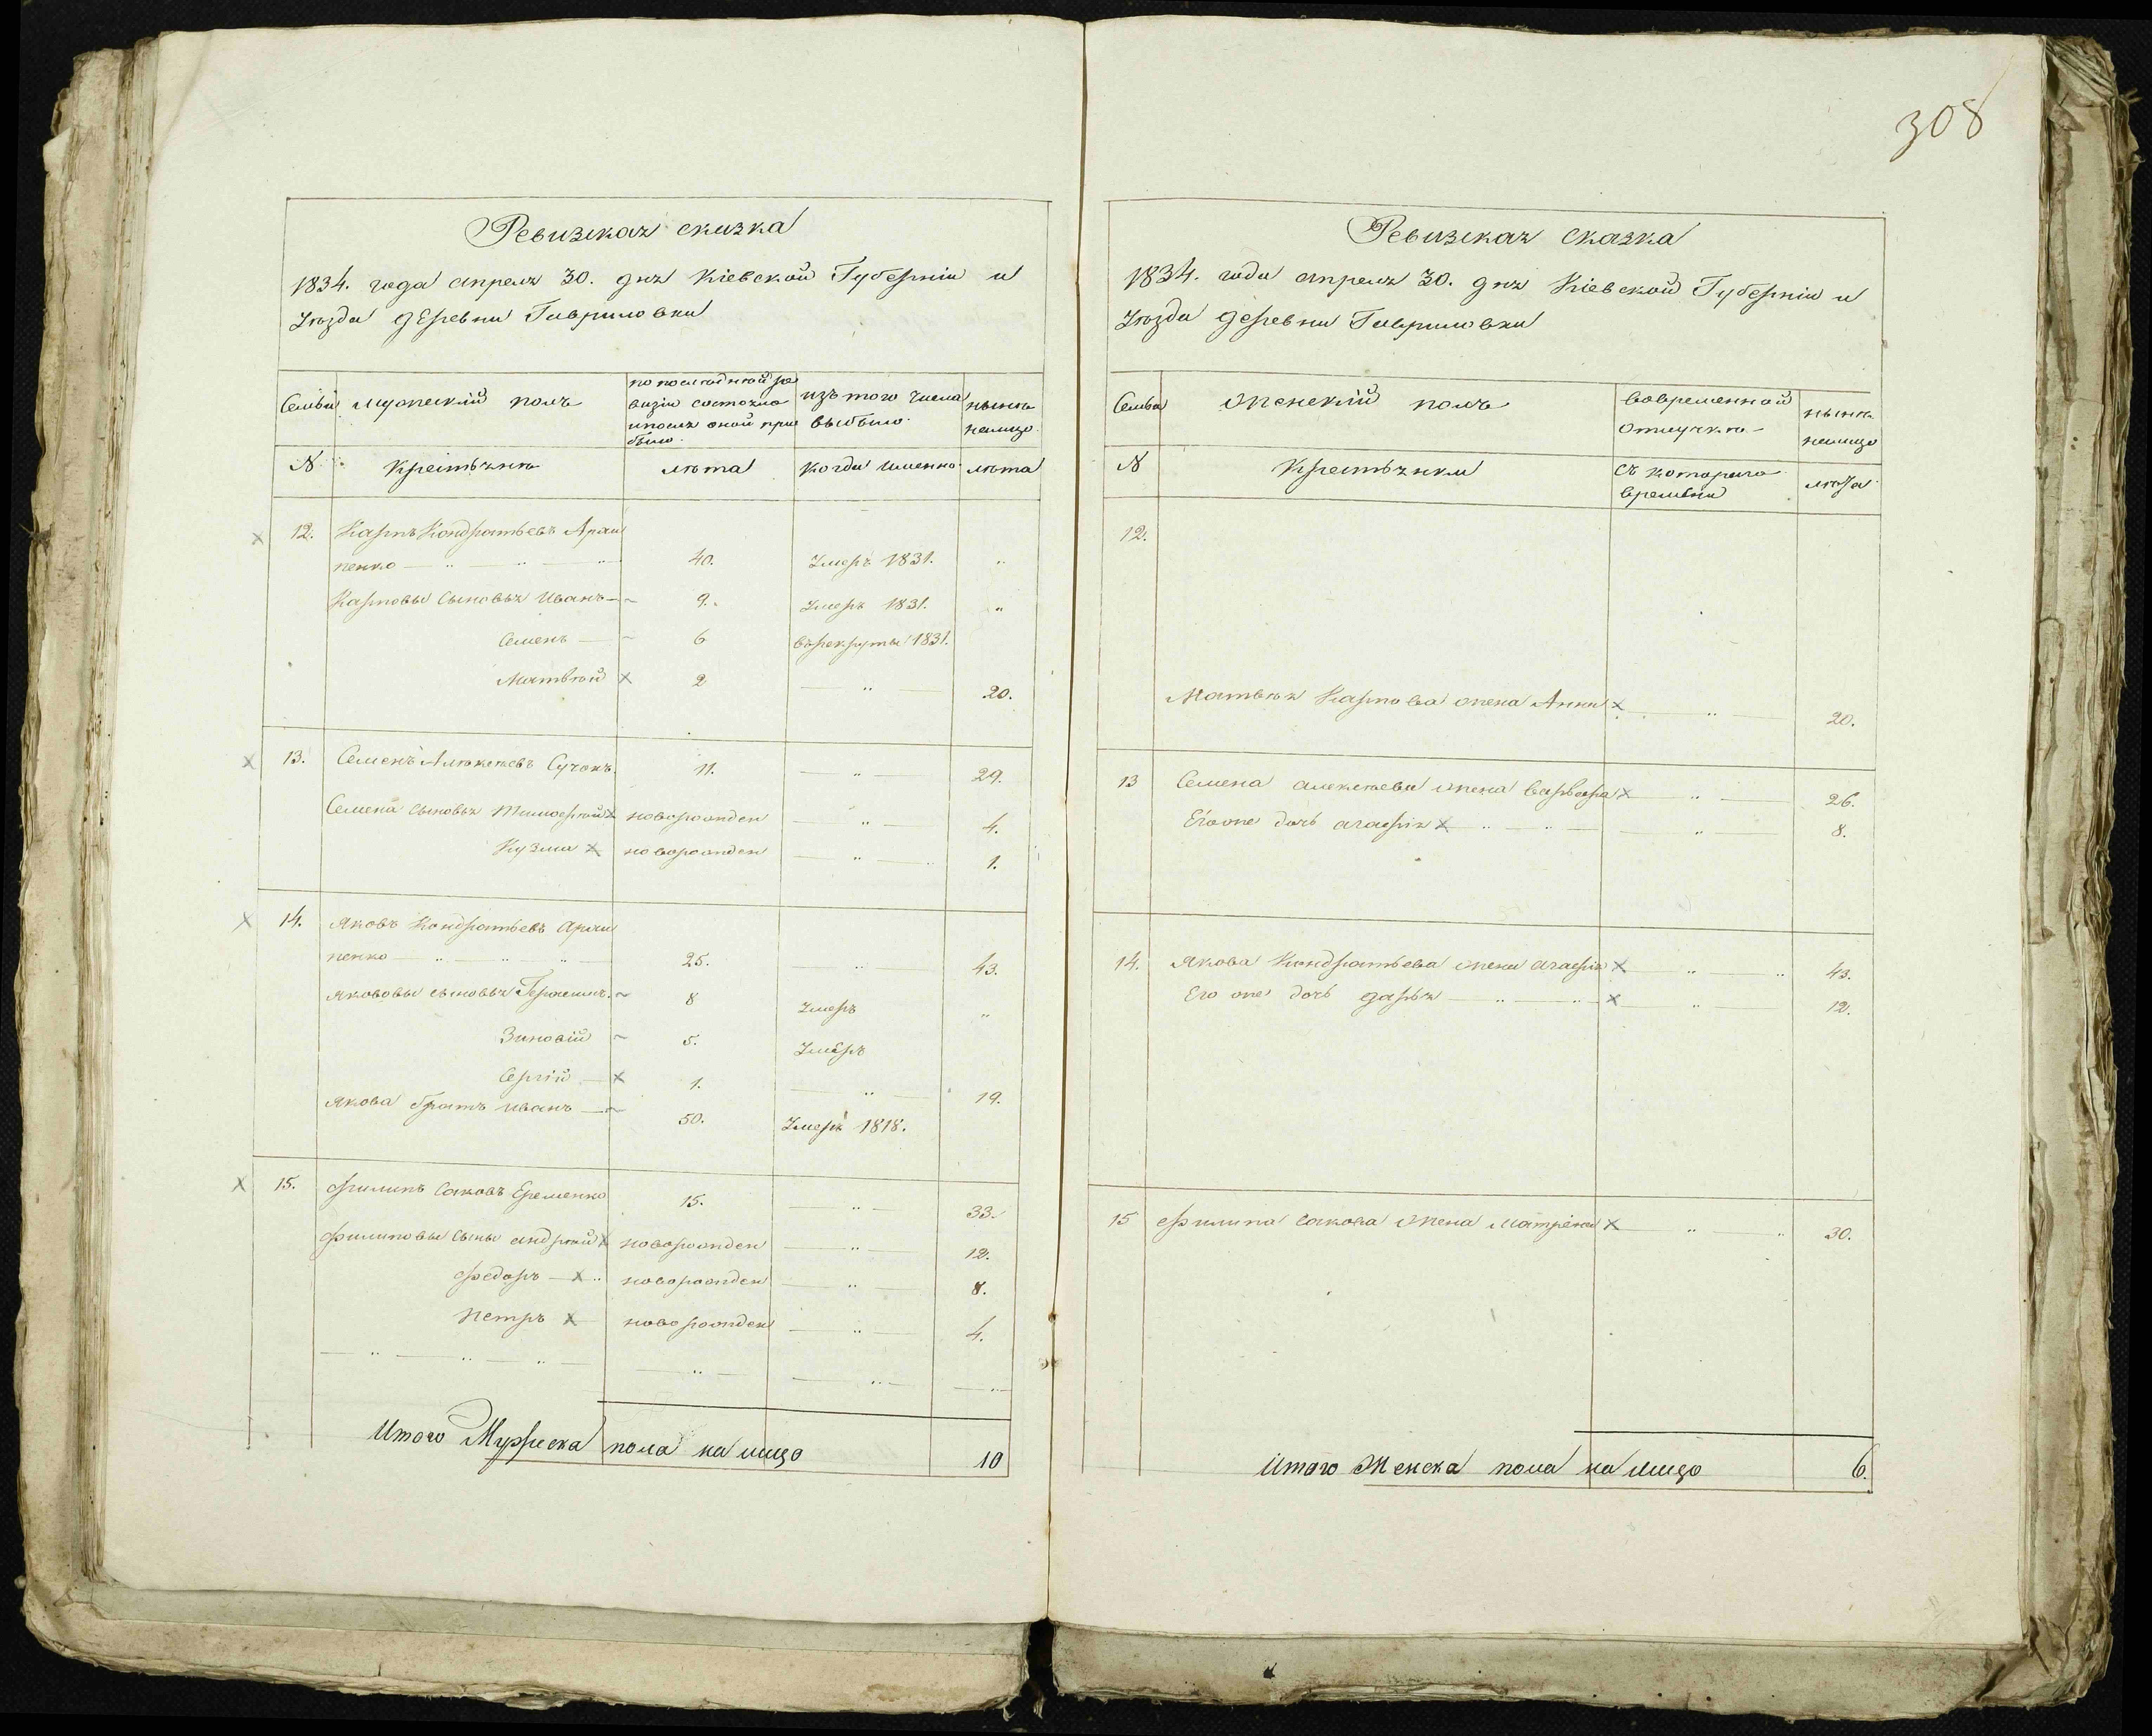 308
Ревизская сказка
1834. года апреля 30. дня Кіевской Губерніи и
Уезда деревни Гавриловки
Семьи мужескій полъ по последней ре изъ того числа ныне
визіи состояло выбыло налицо
и после оной при
было
№ Крестьяне лета когда именно лета
12. Карпъ Кондратьевъ Архи
пенко 40. Умеръ 1831. "
Карповы сыновья Иванъ 9. Умеръ 1831. "
Семенъ 6 въ рекруты 1831.
Матвей 2 " 20.
13. Семенъ Алексеевъ Сучокъ 11. " 29.
Семена сыновья Тимофей новорожден " 4.
Кузма новорожден " 1.
14. Яковъ Кондратьевъ Архи
пенко 25. " 43.
Якововы сыновья Герасимъ 8 Умеръ "
Зиновій 5. Умеръ
Сергій 1. " 19.
Якова братъ Иванъ 50. Умеръ 1818.
15. Филипъ Саковъ Еременко 15. " 33.
Филиповы сыны Андрей новорожден " 12.
Федоръ новорожден " 8.
Петръ новорожден " 4.
Итого Мужеска пола на лицо 10
Ревизская сказка
1834. года апреля 30. дня Кіевской Губерніи и
Уезда деревни Гавриловки
Семьи женскій полъ во временной ныне
отлучке налицо
№ Крестьянки съ котораго лета
времени
12.
Матвея Карпова жена Анна " 20.
13 Семена Алексеева жена Варвара " 26.
Его же дочь Агафія " 8.
14. Якова Кондратьева жена Агафія " 43.
Его же дочь Дарья " 12.
15 Филипа Сакова жена Матрена " 30.
Итого Женска пола на лицо 6.